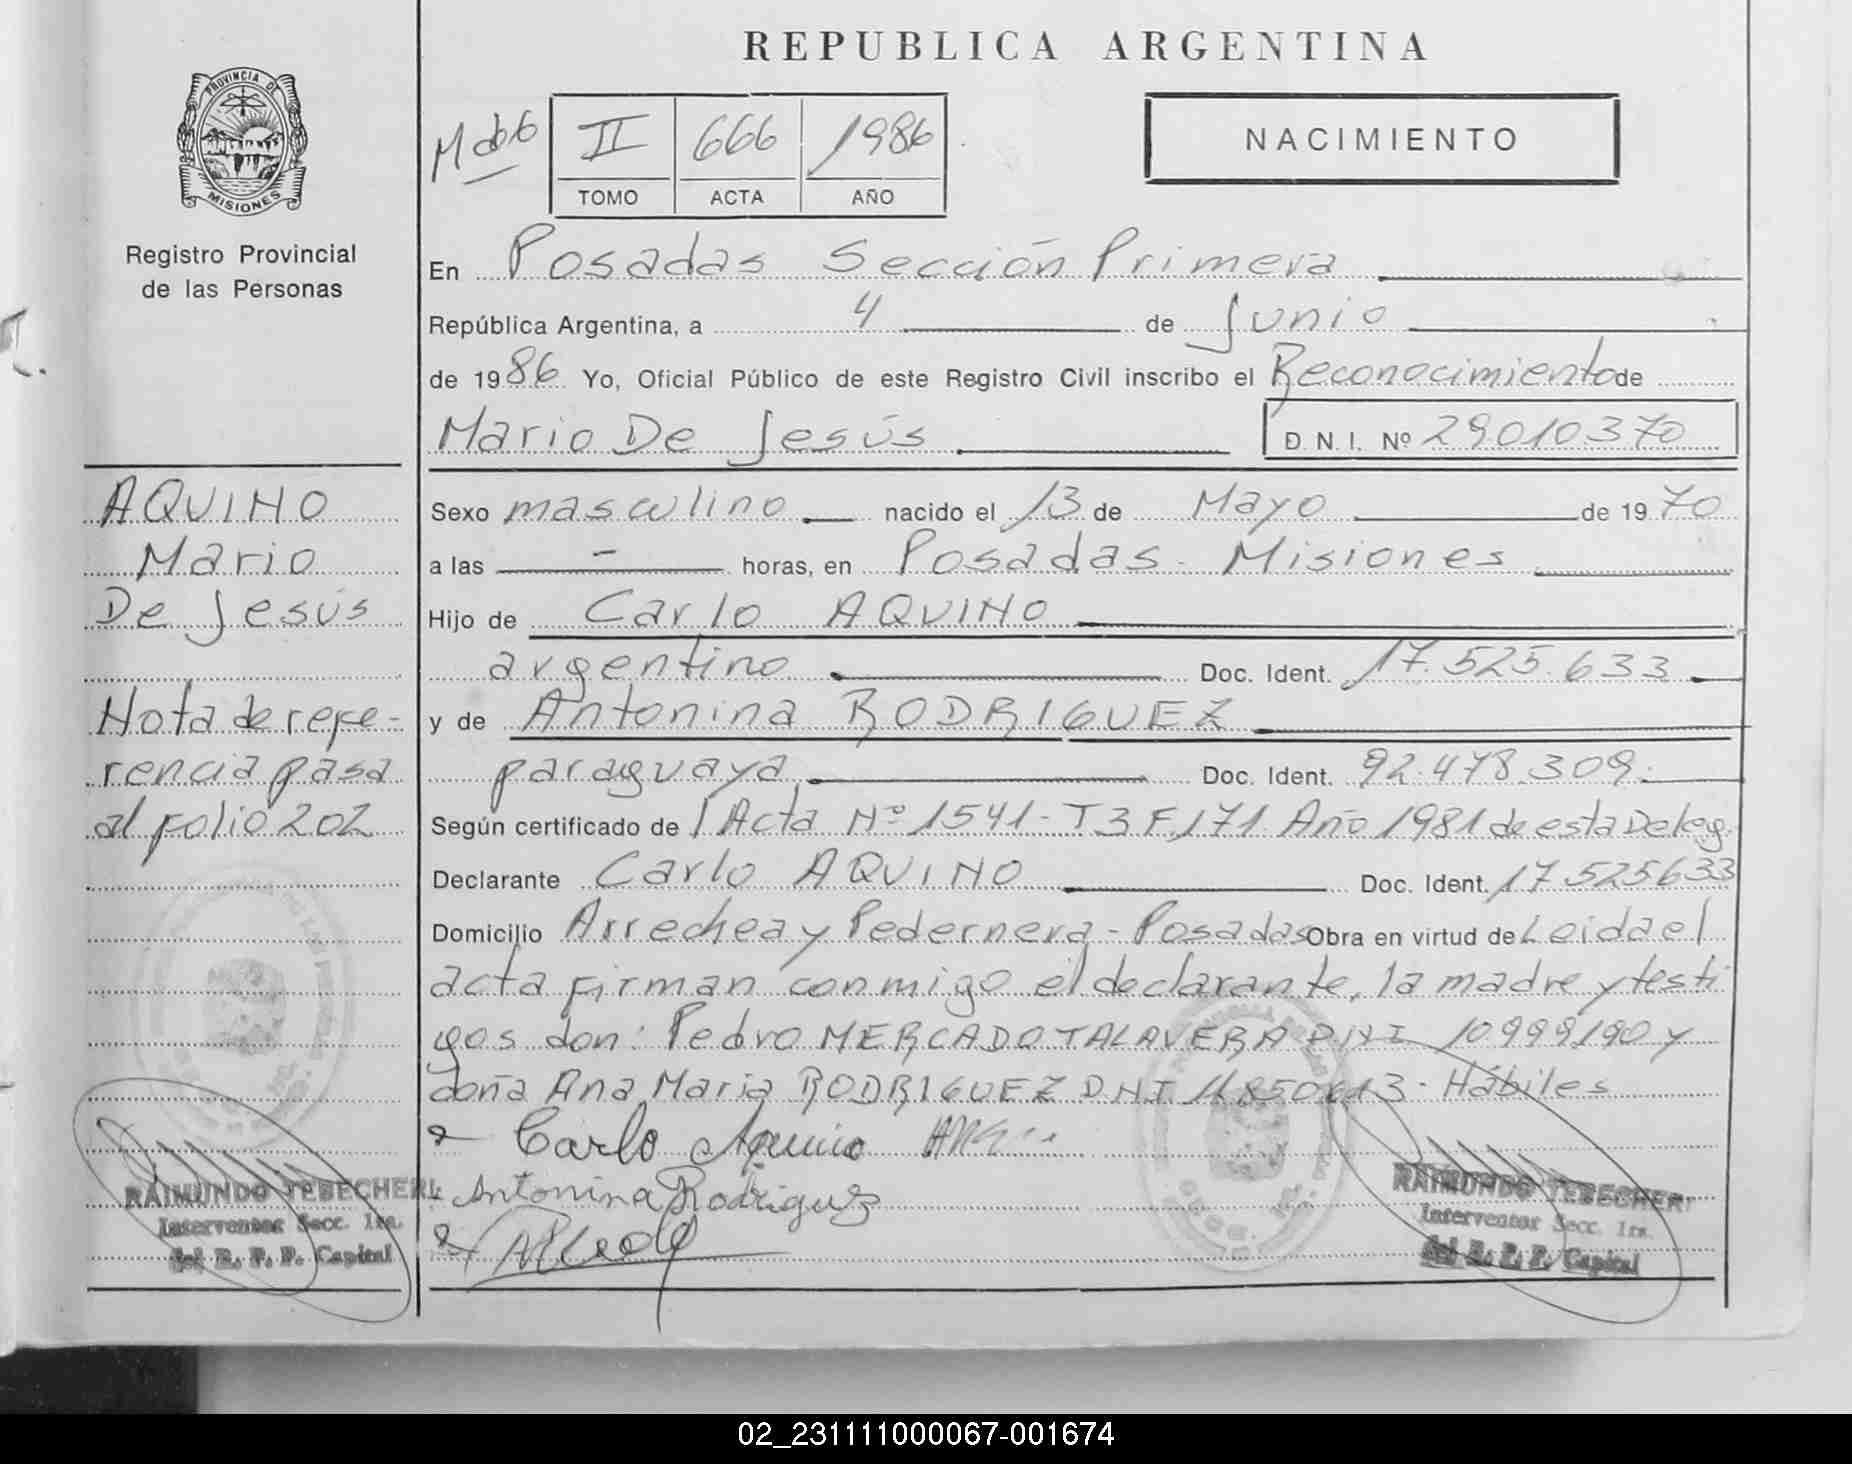 REPUBLICA ARGENTINA
PROVINCIA DE
MISIONES
Registro Provincial
de las Personas
II 666 1986
TOMO ACTA AÑO
NACIMIENTO
En Posadas Sección Primera
República Argentina, a 4 de Junio
de 1986 Yo, Oficial Público de este Registro Civil inscribo el Reconocimiento de
Mario De Jesús D. N. I. Nº 29010370
AQUINO
Mario
De Jesús
Nota de refe=
rencia pasa
al folio 202
Sexo masculino nacido el 13 de Mayo de 1970
a las — horas, en Posadas - Misiones
Hijo de Carlo AQUINO
argentino Doc. Ident. 17.525.633
y de Antonina RODRIGUEZ
paraguaya Doc. Ident. 92.478.309
Según certificado de Acta Nº 1541 - T3 F.171. Año 1981 de esta Deleg.
Declarante Carlo AQUINO Doc. Ident. 17.525633
Domicilio Arrechea y Pedernera - Posadas Obra en virtud de Leida el
acta firman conmigo el declarante, la madre y testi
gos don: Pedro MERCADO TALAVERA DNI 10.999.190 y
doña Ana Maria RODRIGUEZ DNI 11.850.613 - Hábiles
Carlo Aquino
Antonina Rodriguez
RAIMUNDO TEBECHERI
Interventor Secc. 1ra.
del R. P. P. Capital
RAIMUNDO TEBECHERI
Interventor Secc. 1ra.
del R. P. P. Capital
02_231111000067-001674